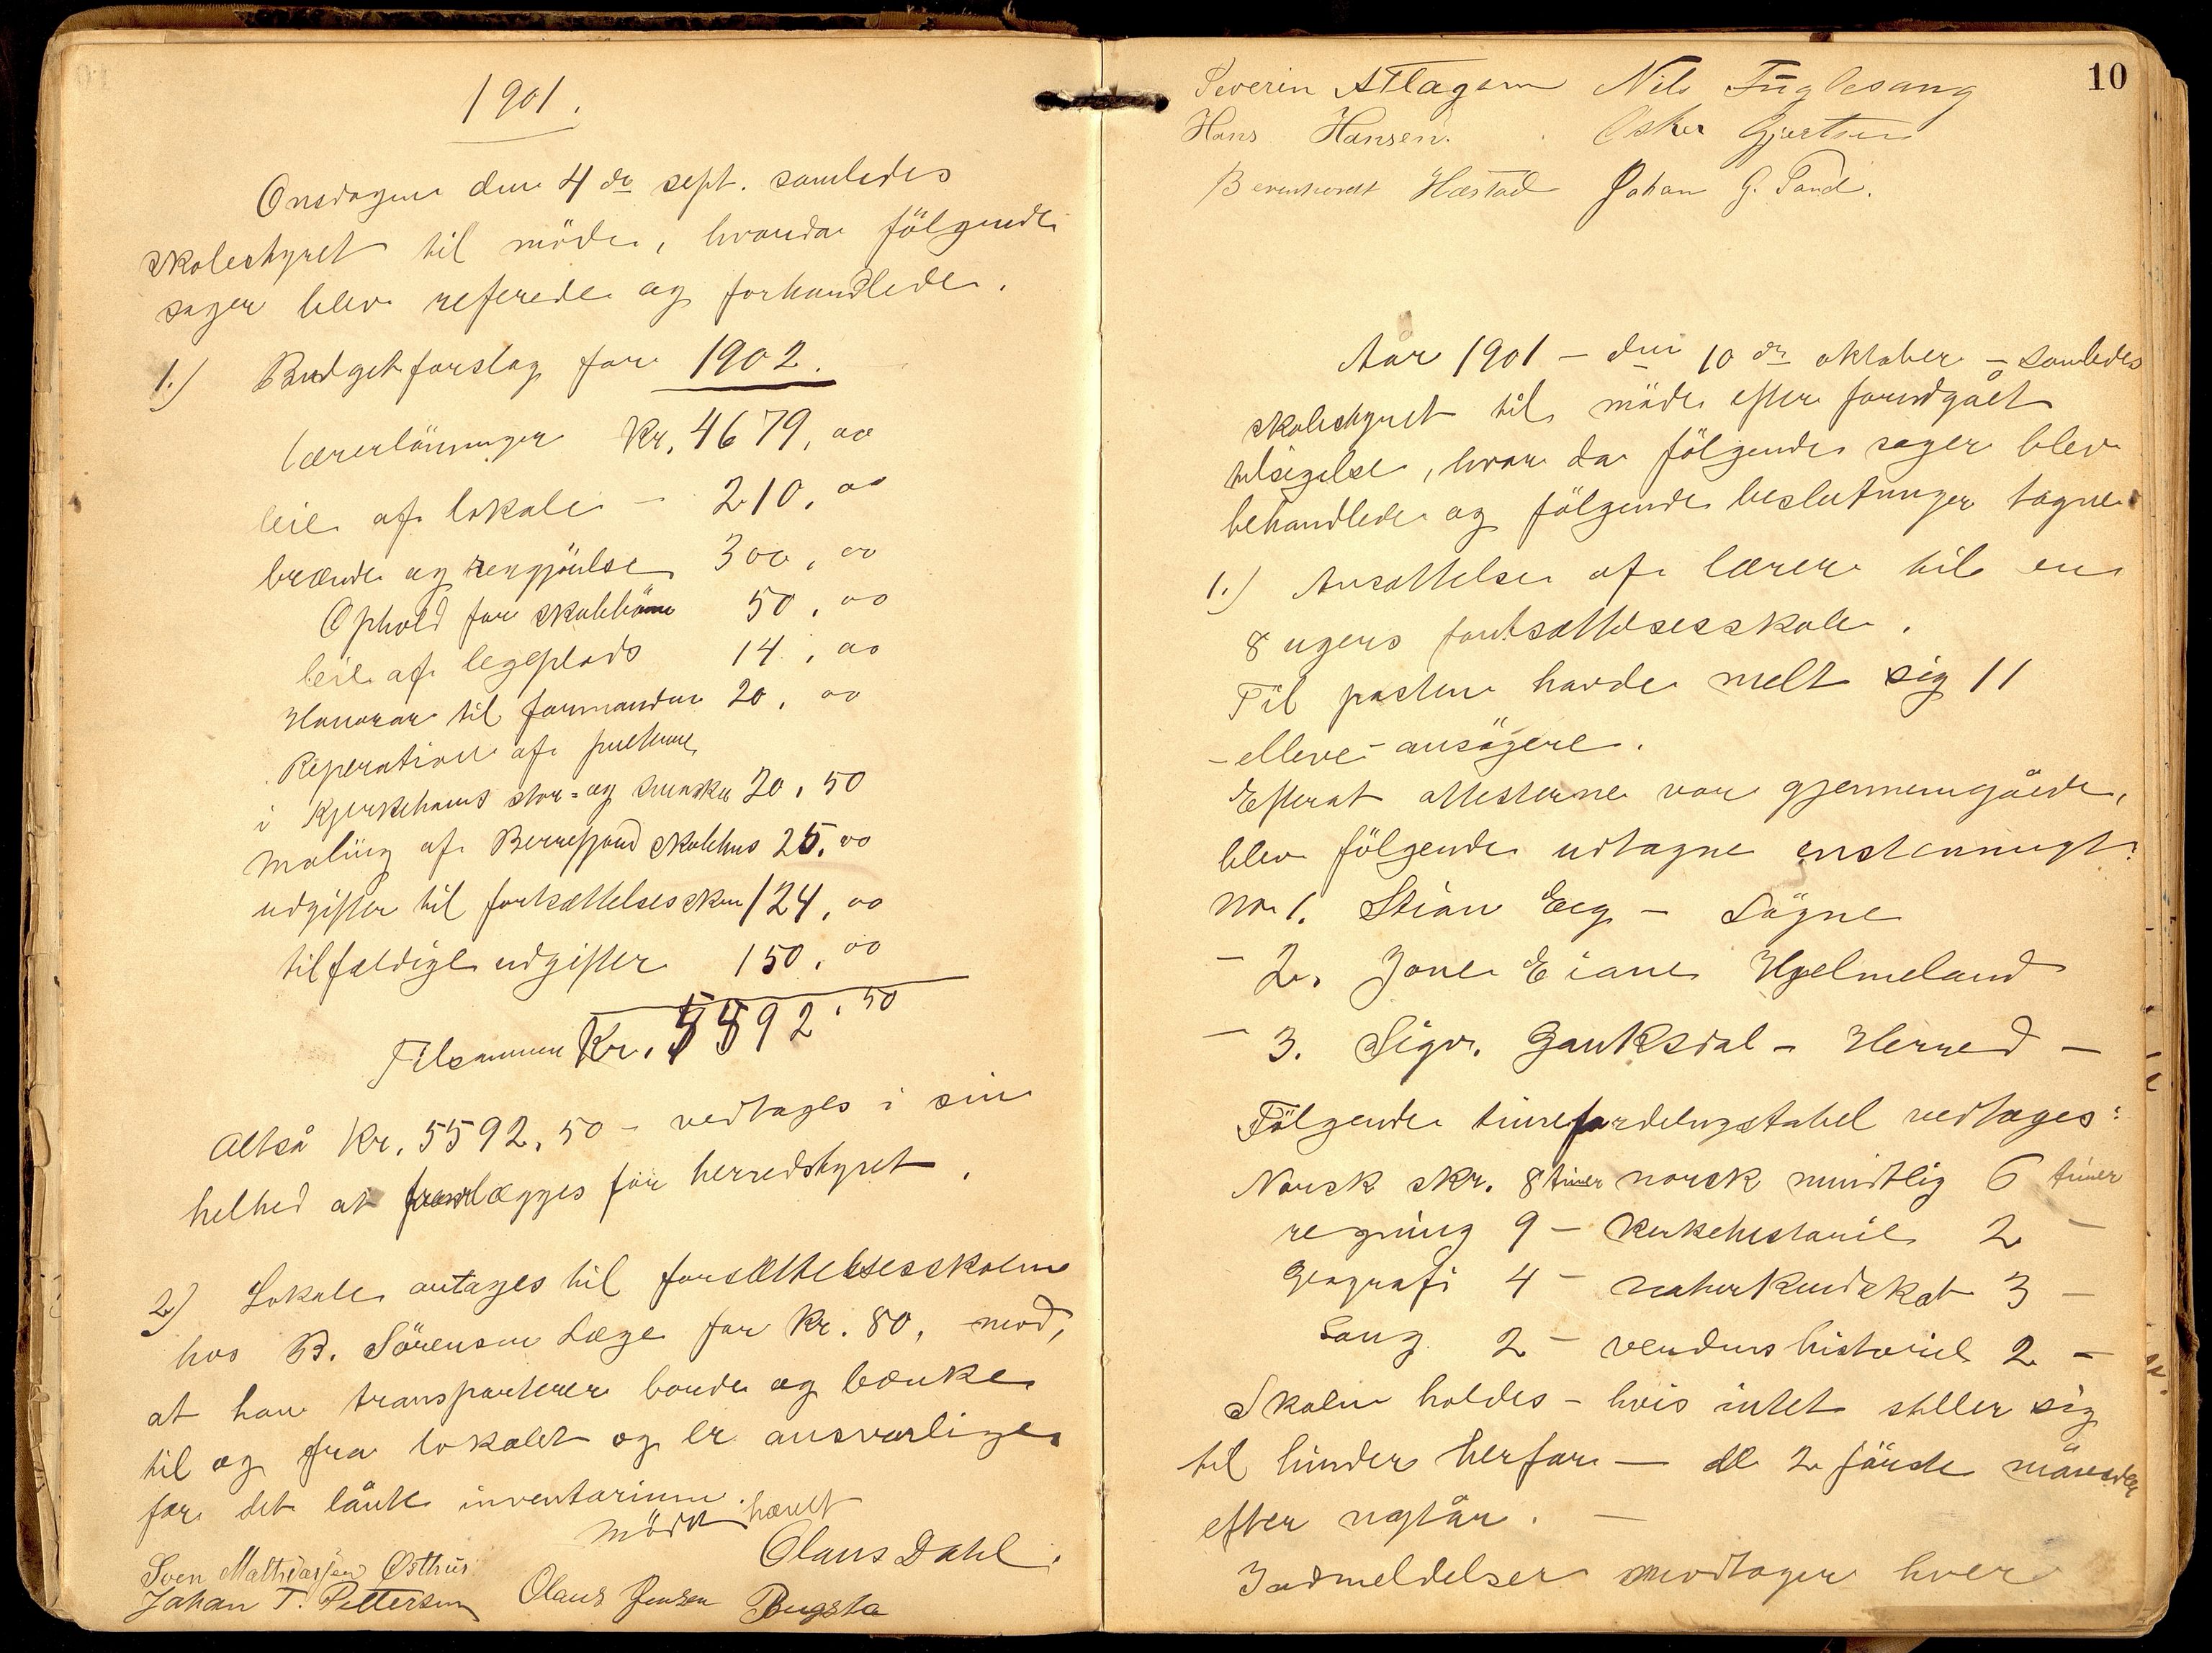 1901.
Onsdagen den 4de sept. samledes
skolestyret til möde, hvorda fölgende
sager blev referede og forhandlede.
1.) Budgetforslag for 1902.
Lærerlönninger Kr. 4679,00
leie af lokale - 210,00
brænde og rengjörelse 300,00
Ophold for skolebörn 50,00
leie af legeplads 14,00
Honorar til formanden 20,00
Reperation af pultene
i Kjerkehavns stor= og småskole 20,50
Maling af Berrefjord skolehus 25,00
udgifter til fortsættelsesskm 124,00
tilfældige udgifter 150,00
Tilsammen Kr. 5592,50
Altså Kr. 5592,50 - vedtages i sin
helhed at fremlægges for herredstyret.
2) Lokale antages til forsættelsesskolen
hos B. Sörensen Læge for Kr. 80, mod,
at han transporterer borde og bænke
til og fra lokalet og er ansvarlige
for det lånte inventarium.
Mödet hævet
Olaus Dahl.
Sven Mathiassen Østhus
Johan T. Pettersen Olaus Jensen Bugsta
10
Severin Atlagsen Nils Fuglesang
Hans Hansen. Osker Gjertsen
Berenhardt Hæstad Johan G. Sand.
Aar 1901 - den 10de oktober - samledes
skolestyret til möde efter forudgået
tilsigelse, hvor da fölgende sager blev
behandlede og fölgende beslutninger tagne
1.) Ansættelse af lærer til en
8 ugers fortsættelsesskole.
Til posten havde melt sig 11
- elleve - ansögere.
Efterat attesterne var gjennemgåede,
blev fölgende udtagne enstemmigt:
No 1. Stian Eeg - Sögne
- 2. Jone Eiane Hjelmeland
- 3. Sigv. Gauksdal - Herred -
Fölgende timefordelngstabel vedtages:
Norsk skr. 8 timer norsk mundtlig 6 timer
regning 9 - Kirkehistorie 2 -
Geografi 4 - naturkundskab 3 -
Sang 2 - verdens historie 2 -
Skolen holdes - hvis intet stiller sig
til hinder herfor - de 2 förste måneder
efter nytår. -
Indmeldelser modtager hver